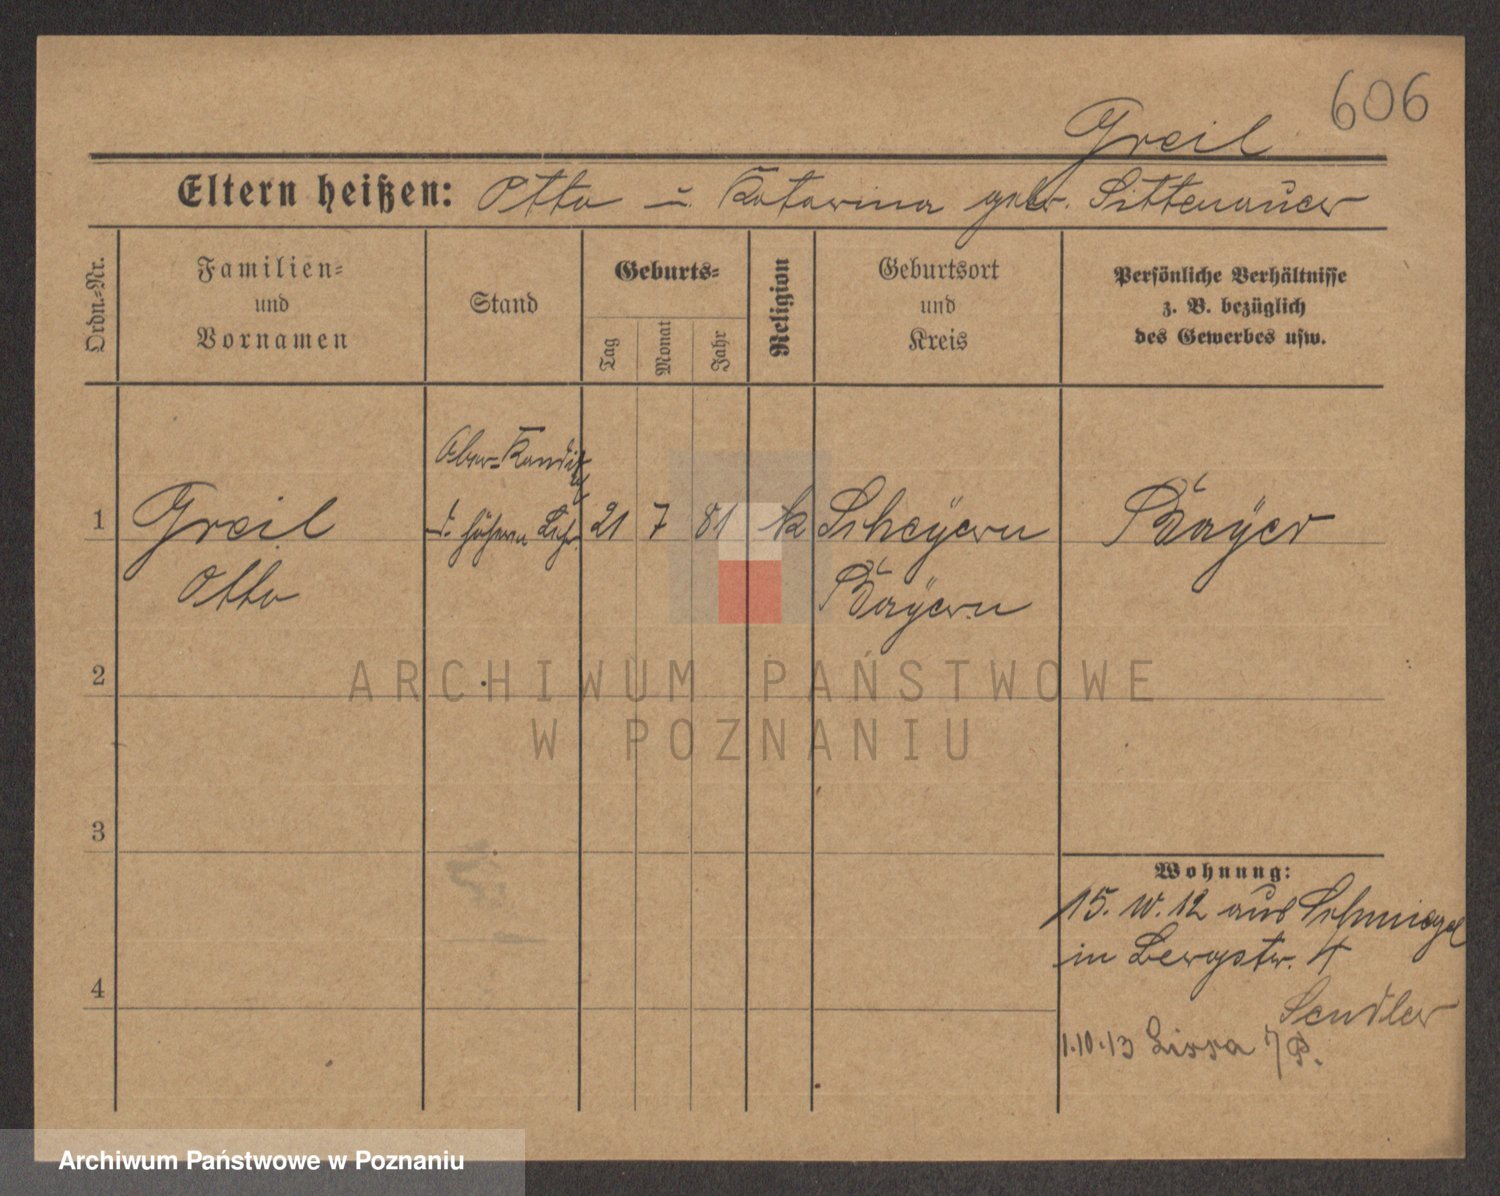 606
Greil
Eltern heißen: Otto u. Katarina geb. Sittenauer
Ordn.-Nr.
Familien-
und
Vornamen
Stand
Geburts-
Tag
Monat
Jahr
Religion
Geburtsort
und
Kreis
Persönliche Verhältnisse
z. B. bezüglich
des Gewerbes usw.
1
Greil
Otto
d. höhern
21
7
81
k
Scheÿern
Baÿern
Baÿer
2
ARCHIWUM PAŃSTWOWE
W POZNANIU
3
4
Wohnung:
15. 12 aus Schmiegel
in Bergstr. 4
Sendler
1.10.13 Lissa P.
Archiwum Państwowe w Poznaniu